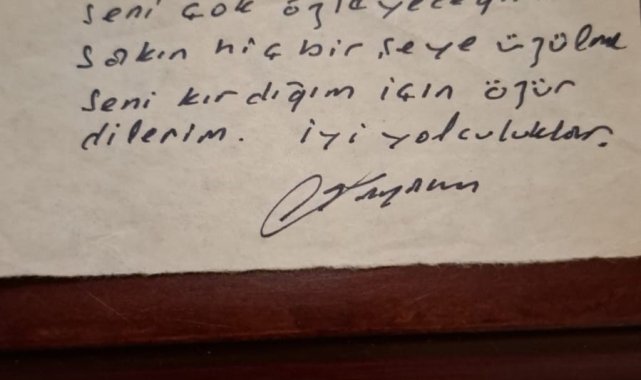 seni çok özleyeceğ
sakın hiç bir şeye üzülme
seni kırdığım için özür
dilerim. iyi yolculuklar.